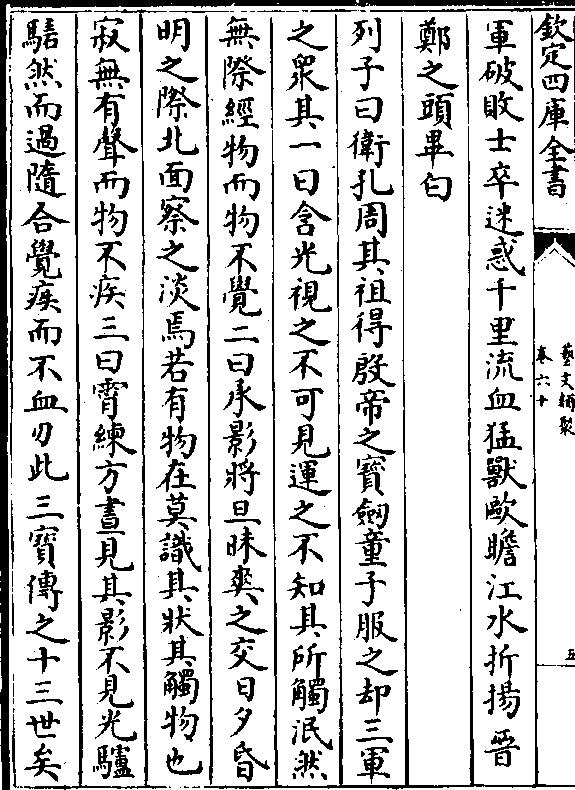 欽定四庫全書
藝文類聚
卷六十
五
軍破敗士卒迷惑千里流血猛獸歐瞻江水折揚晉
鄭之頭畢白
列子曰衛孔周其祖得殷帝之寶劔童子服之却三軍
之衆其一曰含光視之不可見運之不知其所觸泯然
無際經物而物不覺二曰承影將旦昧爽之交日夕昏
明之際北面察之淡焉若有物在莫識其狀其觸物也
寂無有聲而物不疾三曰霄練方晝見其影不見光驢
騞然而過隨合覺疾而不血刃此三寶傳之十三世矣